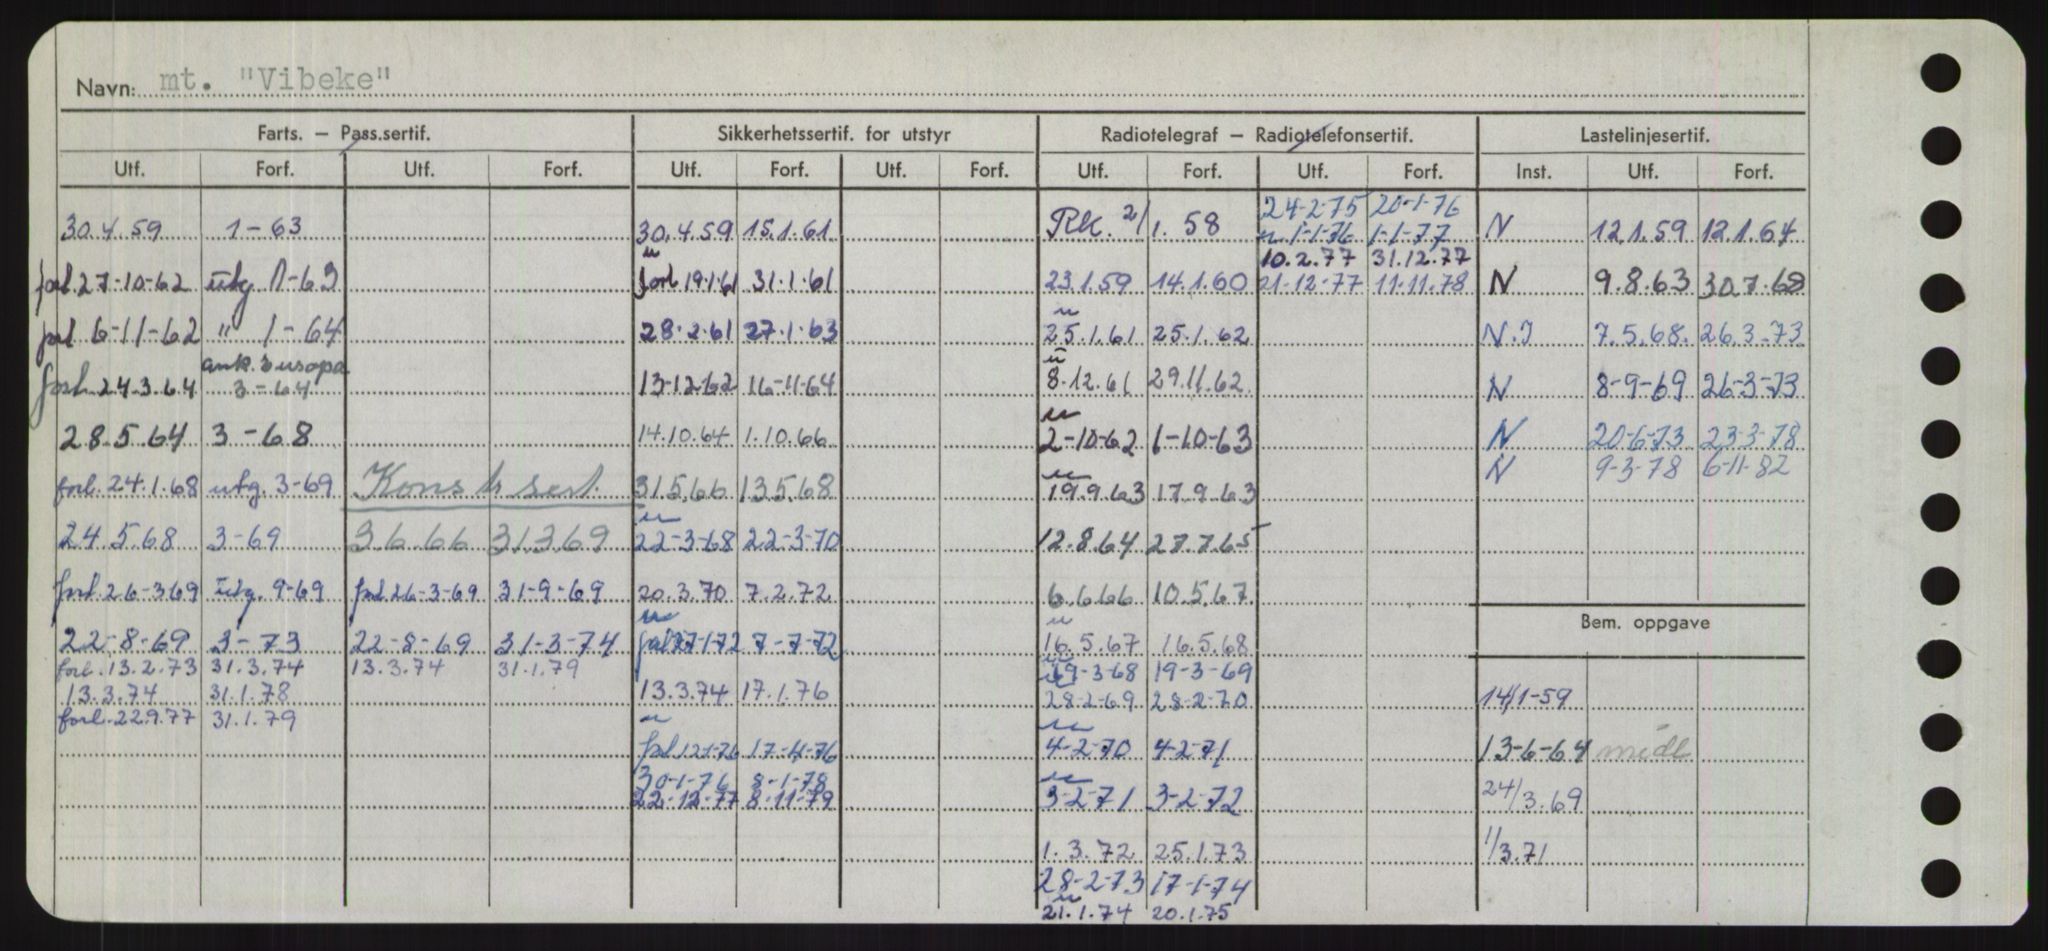 Navn: mt. "Vibeke"
Farts. — Pass.sertif. Sikkerhetssertif. for utstyr Radiotelegraf — Radiotelefonsertif. Lastelinjesertif.
Utf. Forf. Utf. Forf. Utf. Forf. Utf. Forf. Utf. Forf. Utf. Forf. Inst. Utf. Forf.
24-2-75 20-1-76
30.4.59 1-63 30.4.59 15.1.61 Rk. 2/1. 58 u 1-1-76 1-1-77 N 12.1.59 12.1.64
10.2.77 31.12.77
forl 27-10-62 utg. 1-63 u forl 19.1.61 31.1.61 23.1.59 14.1.60 21-12-77 11.11.78 N 9.8.63 30.7.68
forl 6-11-62 " 1-64 28.2.61 27.1.63 u 25.1.61 25.1.62 N.I 7.5.68. 26.3.73
ank. Europa
forl. 24.3.64 3-64 13-12-62 16-11-64 u 8.12.61 29.11.62 N 8-9-69 26-3-73
28.5.64 3-68 14.10.64 1.10.66 u 2-10-62 1-10-63 N 20-6-73 23-3-78
N 9-3-78 6-11-82
forl. 24.1.68 utg. 3-69 Konstr sert. 31.5.66 13.5.68 u 19.9.63 17.9.63
24.5.68 3-69 3.6.66 31.3.69 u 22-3-68 22-3-70 12.8.64 27.7.65
forl. 26-3-69 utg. 9-69 forl 26-3-69 31-9-69 20.3.70 7.2.72 6.6.66 10.5.67
22-8-69 3-73 22-8-69 31-3-74 u forl 27-1-72 7-7-72 u 16.5.67 16.5.68
forl. 13.2.73 31.3.74 13.3.74 31.1.79 u 19-3-68 19-3-69
13.3.74 31.1.78 13.3.74 17.1.76 28-2-69 28-2-70
forl. 22.9.77 31.1.79
u forl 12-1-76 17-4-76 u 4-2-70 4-2-71
30-1-76 8-1-78
22-12-77 8-11-79 u 3-2-71 3-2-72
1.3.72 25.1.73
28-2-73 17-1-74
u 21.1.74 20.1.75
Bem. oppgave
14/1-59
13-6-64 midl
24/3.69
1/3.71